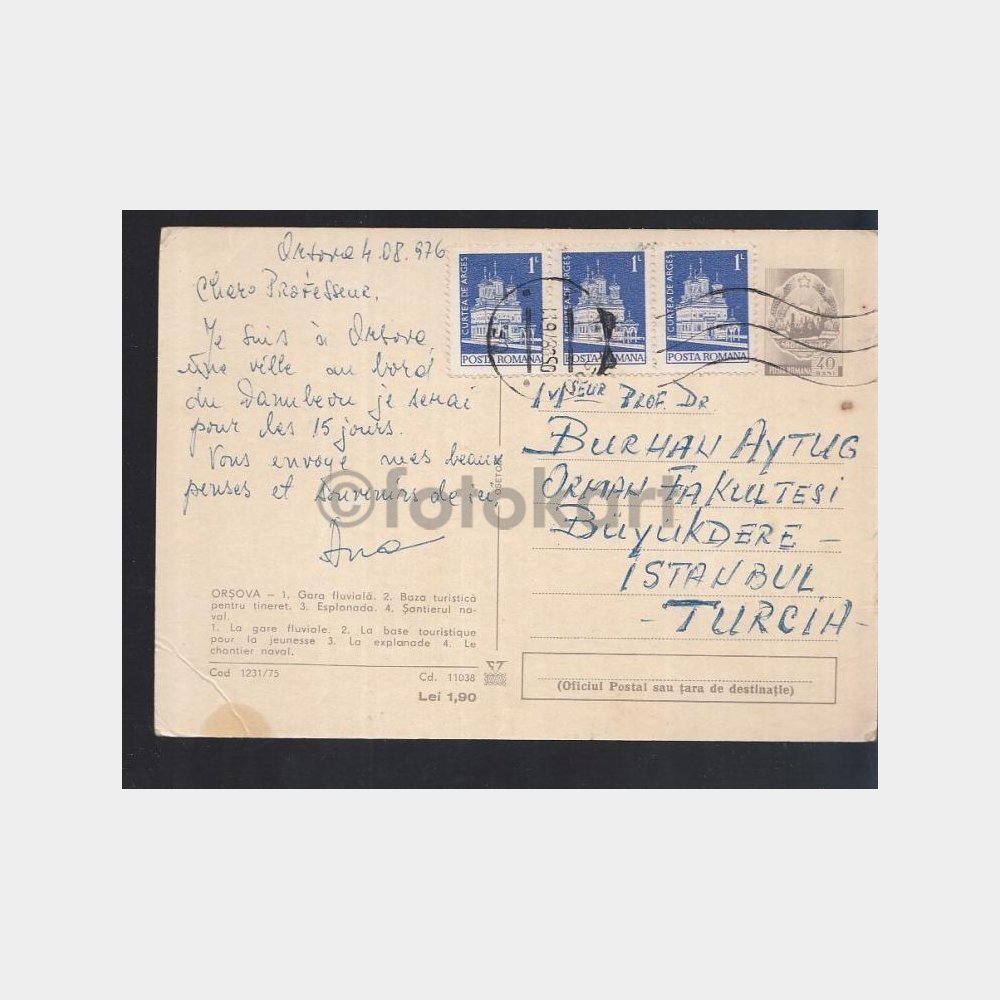 Orsova 4.08.976
Chero Professeur,
Je suis à Orsova,
une ville au bord
du Danubeou je serai
pour les 15 jours.
Vous envoye mes beaux
penses et souvenirs de ici,
Ana
1L
CURTEA DE ARGEȘ
POSTA ROMANA
1L
CURTEA DE ARGEȘ
POSTA ROMANA
1L
CURTEA DE ARGEȘ
POSTA ROMANA
POSTA ROMANA
40
BANI
Mseur PROF. DR
BURHAN AYTUG
ORMAN FAKULTESI
BÜYÜKDERE –
ISTANBUL
- TURCIA -
©fotokart
ORȘOVA – 1. Gara fluvială. 2. Baza turistică
pentru tineret. 3. Esplanada. 4. Șantierul na-
val.
1. La gare fluviale. 2. La base touristique
pour la jeunesse 3. La explanade 4. Le
chantier naval.
Cod 1231/75
Cd. 11038
Lei 1,90
(Oficiul Poștal sau țara de destinație)